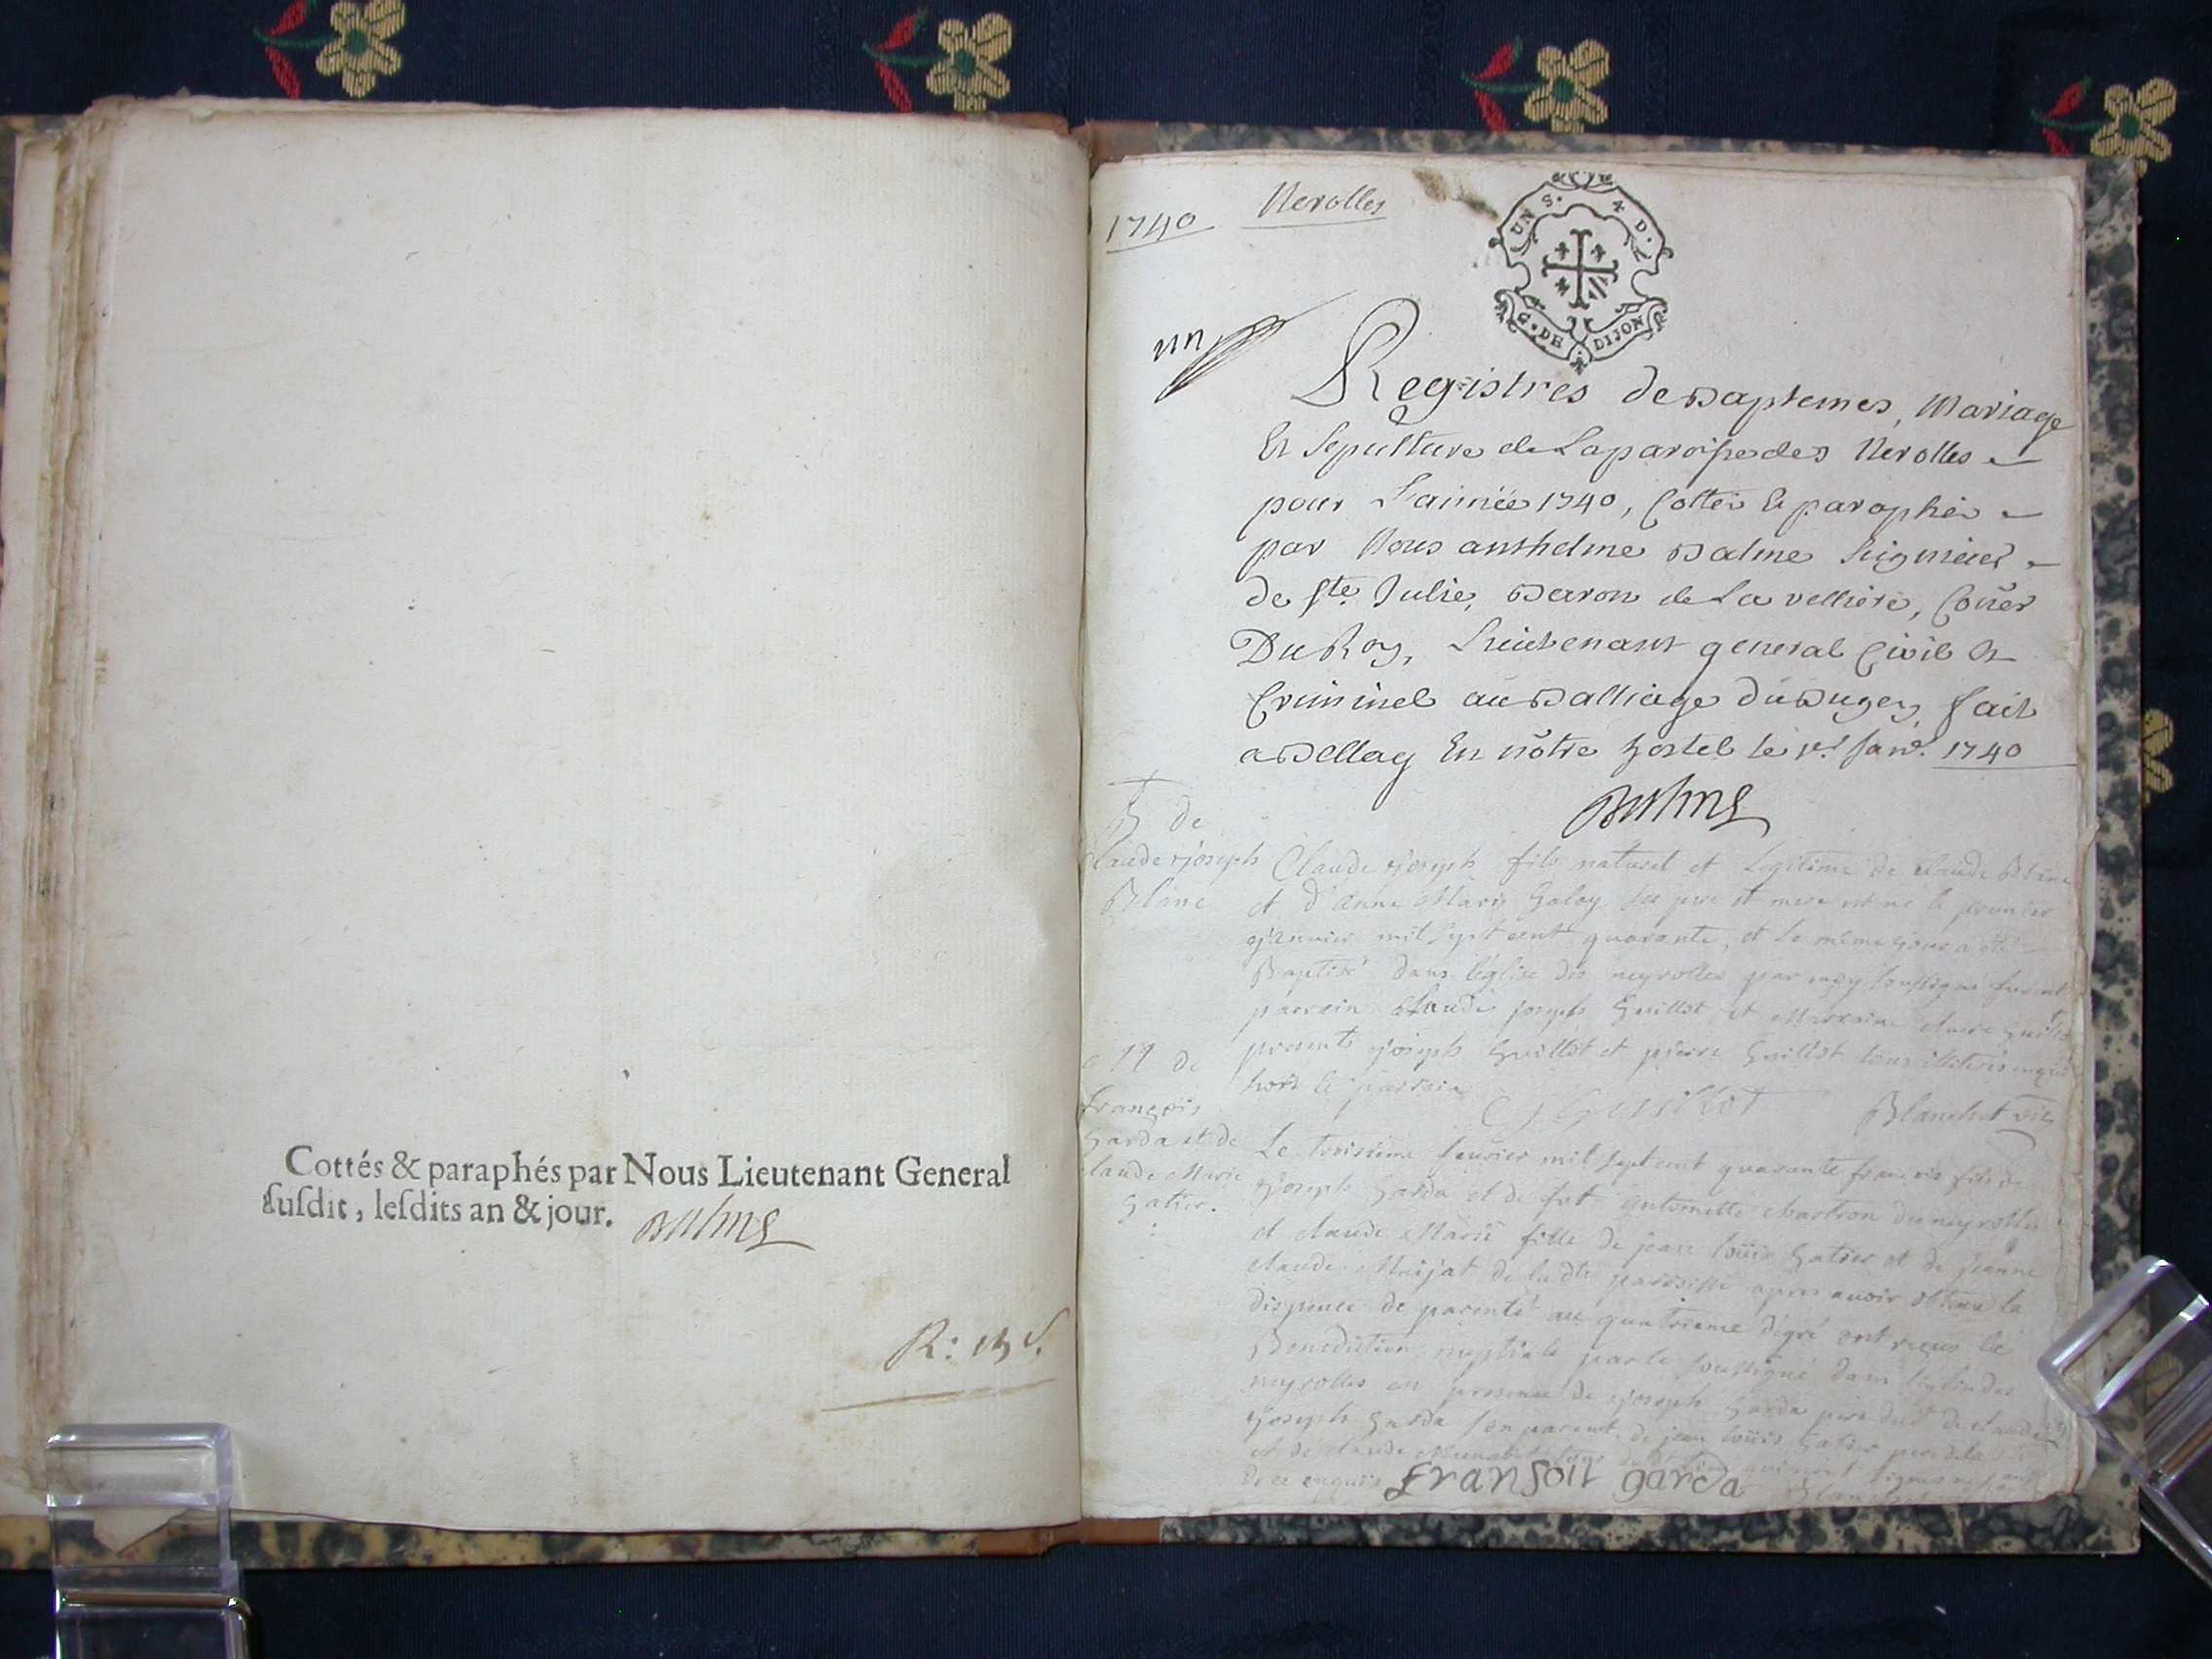 Cottés & paraphés par Nous Lieutenant General
ſuſdit, leſdits an & jour.
1740 Nerolles
UN S. 4 D.
G. DE DIJON
un
Registres de Baptemes, Mariage
Et Sepulture de La paroisse des Nerolles
pour L'année 1740, Cottés & paraphés
par Nous anthelme Balme Seigneur
de Ste Julie, Baron de La velliere, Coñer
Du Roy, Lieutenant general Civil Et
Criminel au Balliage du Bugey, fait
a Belley En nôtre hostel le 1er Janv. 1740
Balme
B de
Claude joseph
Blanc
Claude joseph fils naturel et Legitime de claude Blanc
et d'Anne Marie Galay ses pere et mere est né le premier
janvier mil sept cent quarante, et le même jour a été
Baptisé dans l'église des neyrolles par moy soussigné furent
parrain Claude joseph Guillot et Marraine
presents joseph Guillot et pierre Guillot tous illiterés enquis
hors le parrain
C J Guillot Blanchet
M de
françois
Garda et de
claude Marie
Gatier.
Le troisieme fevrier mil sept cent quarante françois fils de
joseph Garda et de fut antoinette chartron des neyrolles
et claude Marie fille de jean loüis Gatier et de jeanne
claude Maijat de ladte parroisse apres avoir obtenu la
dispence de parenté au quatrieme dégré ont reçus la
Benediction nuptiale par le soussigné dans l'église des
neyrolles en presence de joseph Garda pere
joseph Garda son parent, de jean loüis Gatier pere de la
et de claude
de ce enquis fransoit garda